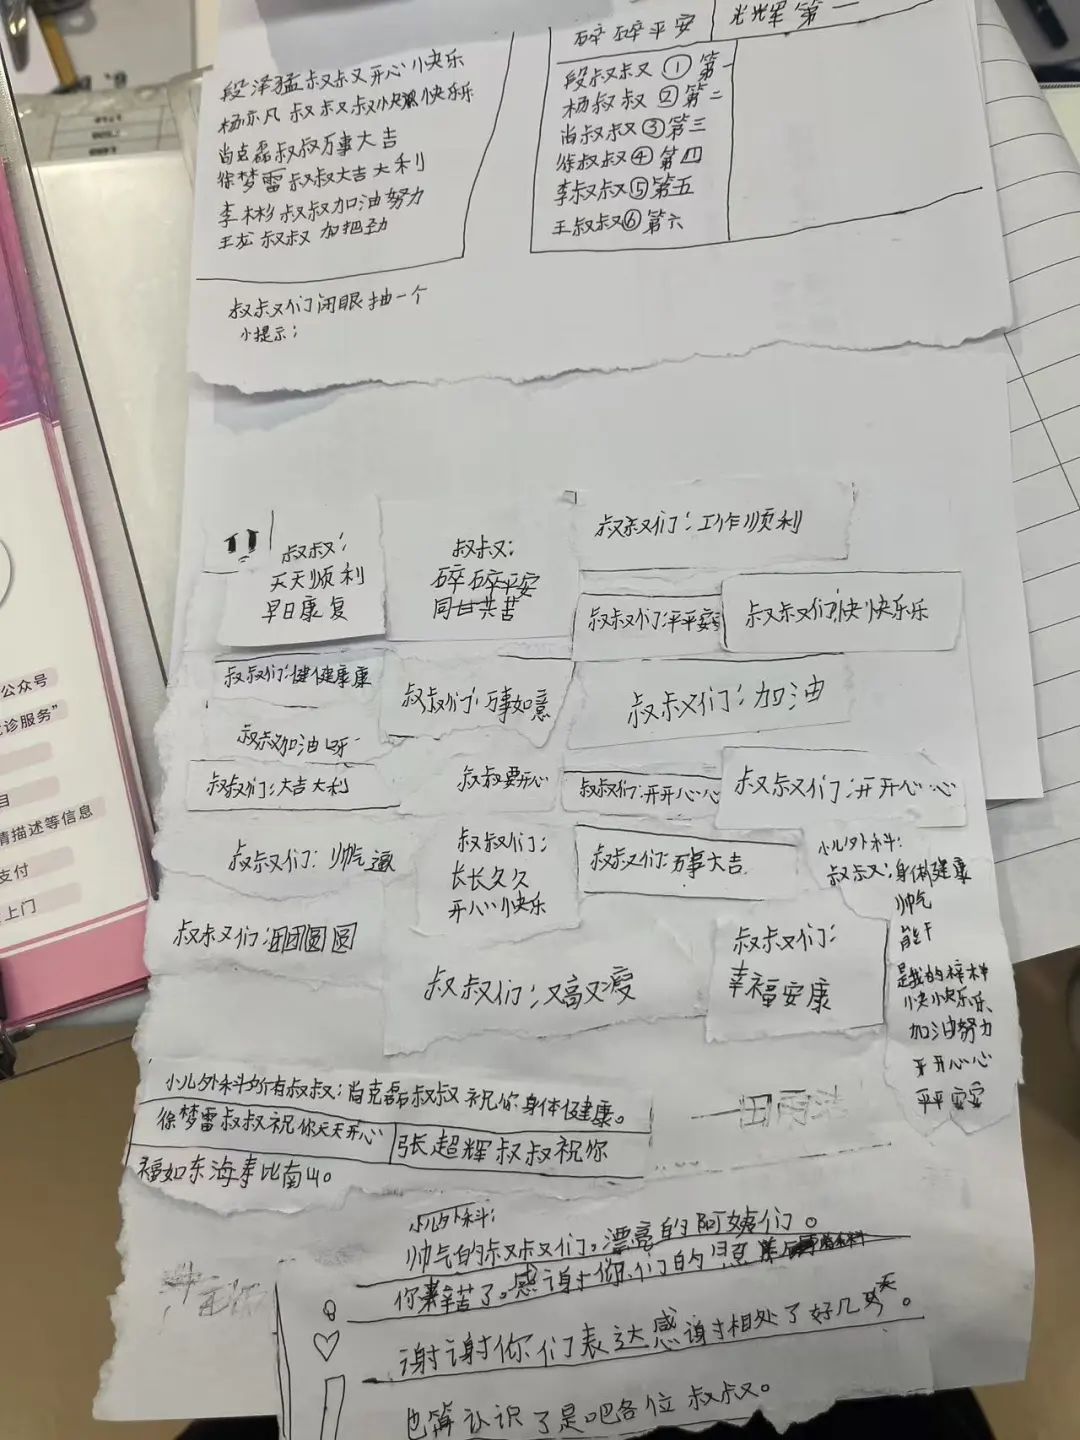 段泽猛叔叔叉开心快乐
杨亦凡叔叔叔快快乐乐
尚克磊叔叔万事大吉
徐梦雷叔叔大吉大利
李彬叔叔加油努力
王龙叔叔加把劲
叔叔们闭眼抽一个
小提示:
碎碎平安
光辉第一
段叔叔①第一
杨叔叔②第二
尚叔叔③第三
徐叔叔④第四
李叔叔⑤第五
王叔叔⑥第六
叔叔:
天天顺利
早日康复
叔叔:
碎碎平安
同甘共苦
叔叔们:工作顺利
叔叔们:平平安安
叔叔们:快快乐乐
叔叔们:健健康康
叔叔们:万事如意
叔叔们:加油
叔叔加油呀
叔叔们:大吉大利
叔叔要开心
叔叔们:开开心心
叔叔们:开开心心
叔叔们:帅气
叔叔们:
长长久久
开心快乐
叔叔们:万事大吉
小儿外科:
叔叔:身体健康
帅气
能干
是我的榜样
快快乐乐
加油努力
开开心心
平平安安
叔叔们:团团圆圆
叔叔们:又高又瘦
叔叔们:
幸福安康
小儿外科所有叔叔:尚克磊叔叔祝你身体健康。
徐梦雷叔叔祝你天天开心
张超辉叔叔祝你
福如东海寿比南山。
小儿外科:
帅气的叔叔们。漂亮的阿姨们。
你辛苦了。感谢你们的
谢谢你们表达感谢相处了好几天。
也算认识了是吧各位叔叔。
公众号
诊服务”
目
情描述等信息
支付
上门